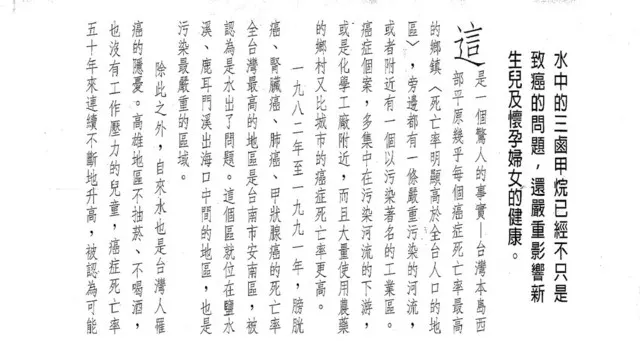 水中的三鹵甲烷已經不只是
致癌的問題，還嚴重影響新
生兒及懷孕婦女的健康。
這是一個驚人的事實—台灣本島西
部平原幾乎每個癌症死亡率最高
的鄉鎮〈死亡率明顯高於全台人口的地
區〉，旁邊都有一條嚴重污染的河流，
或者附近有一個以污染著名的工業區。
癌症個案，多集中在污染河流的下游，
或是化學工廠附近，而且大量使用農藥
的鄉村又比城市的癌症死亡率更高。
一九八二年至一九九一年，膀胱
癌、腎臟癌、肺癌、甲狀腺癌的死亡率
全台灣最高的地區是台南市安南區，被
認為是水出了問題。這個區就位在鹽水
溪、鹿耳門溪出海口中間的地區，也是
污染最嚴重的區域。
除此之外，自來水也是台灣人罹
癌的隱憂。高雄地區不抽菸、不喝酒，
也沒有工作壓力的兒童，癌症死亡率
五十年來連續不斷地升高，被認為可能